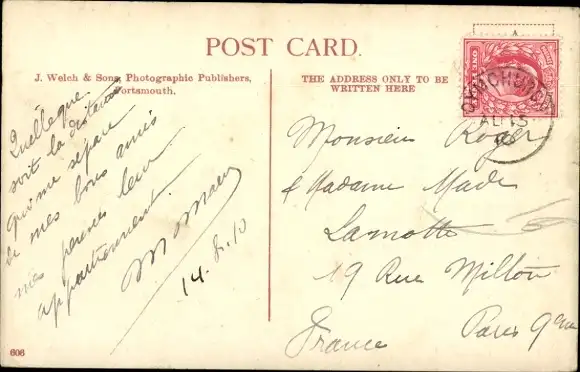 POST CARD.
J. Welch & Sons, Photographic Publishers,
Portsmouth.
THE ADDRESS ONLY TO BE
WRITTEN HERE
Quelle que
soit la distance
qui me sépare
de mes bons amis
mes pensées leur
appartiennent.
14. 8. 10
Monsieur Roger
& Madame Made
Lamotte
19 Rue Milton
Paris 9em
France
AU 15
606